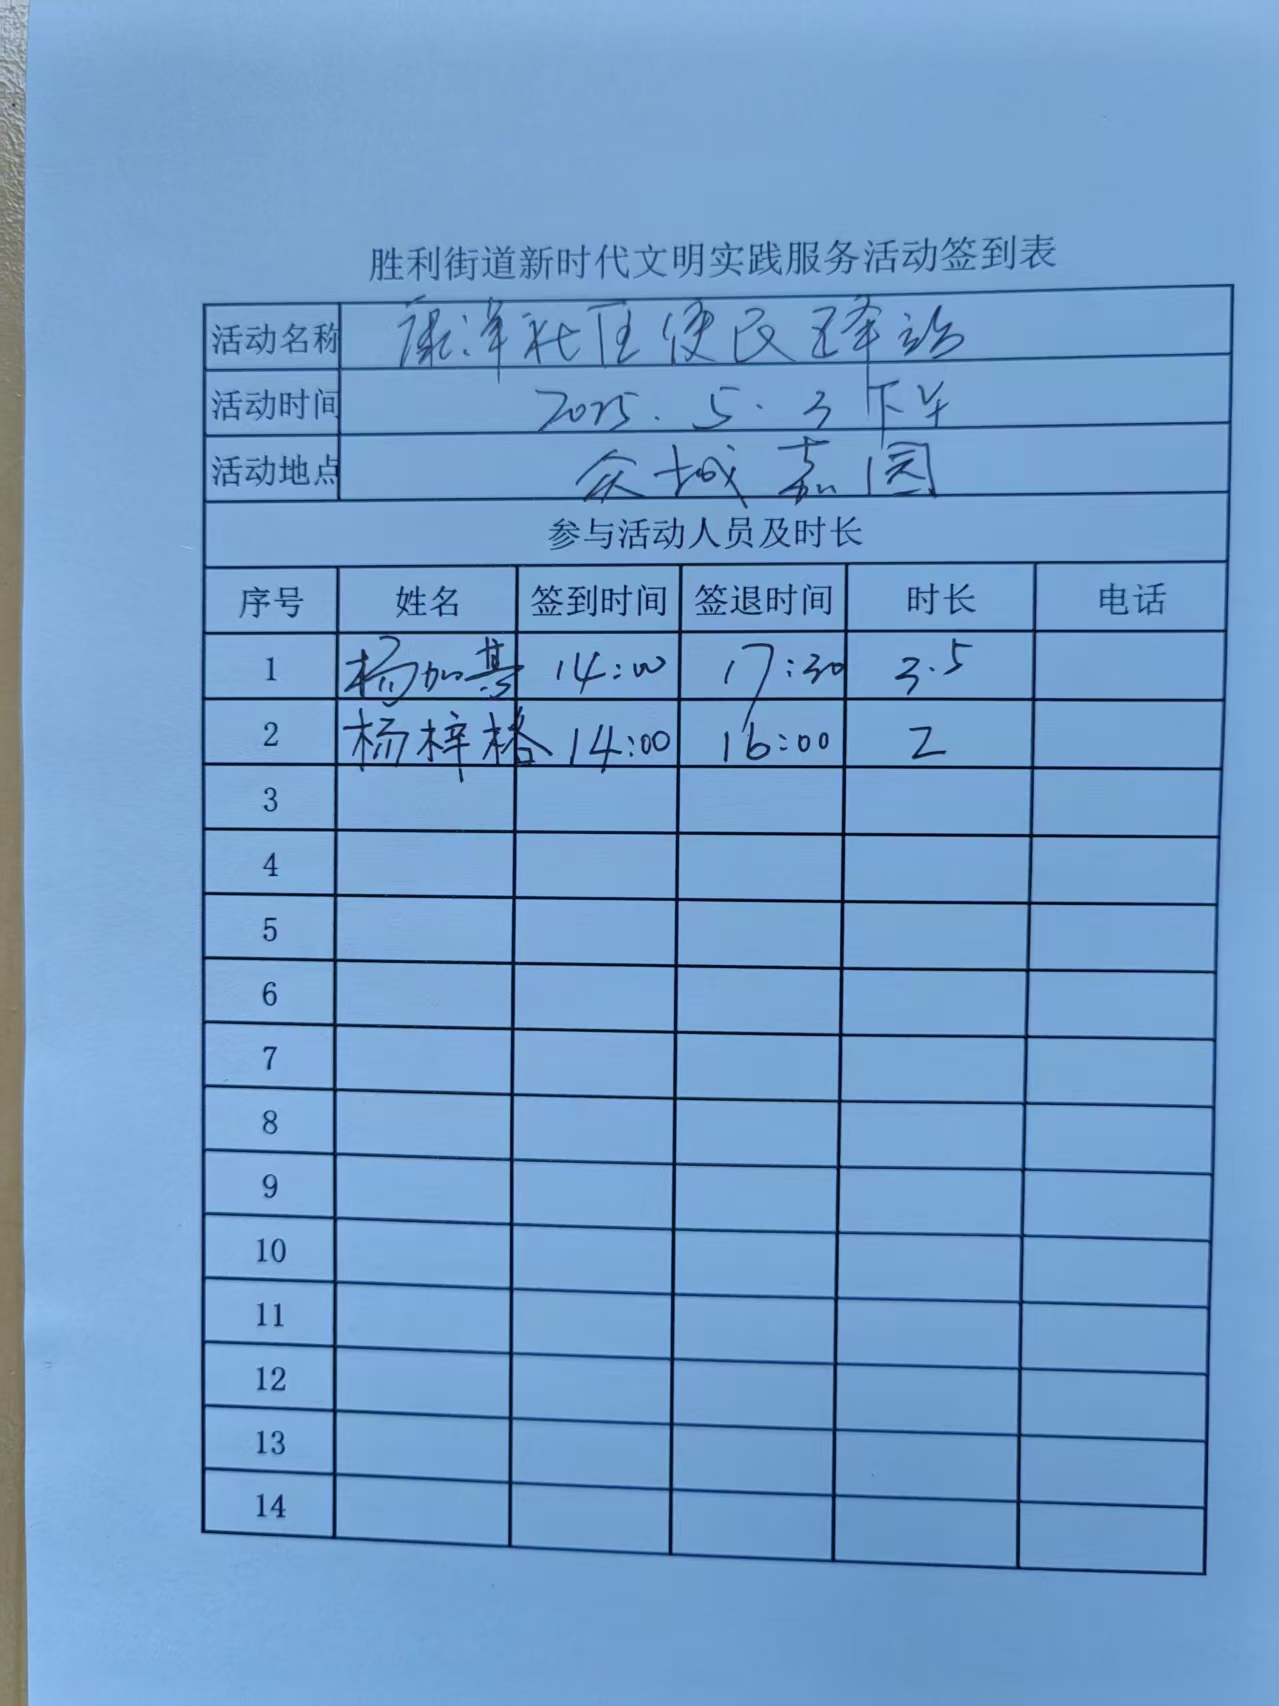 胜利街道新时代文明实践服务活动签到表
活动名称 康泽社区便民驿站
活动时间 2025.5.3下午
活动地点 众城嘉园
参与活动人员及时长
序号 姓名 签到时间 签退时间 时长 电话
1 杨加 14:00 17:30 3.5
2 杨梓 14:00 16:00 2
3
4
5
6
7
8
9
10
11
12
13
14